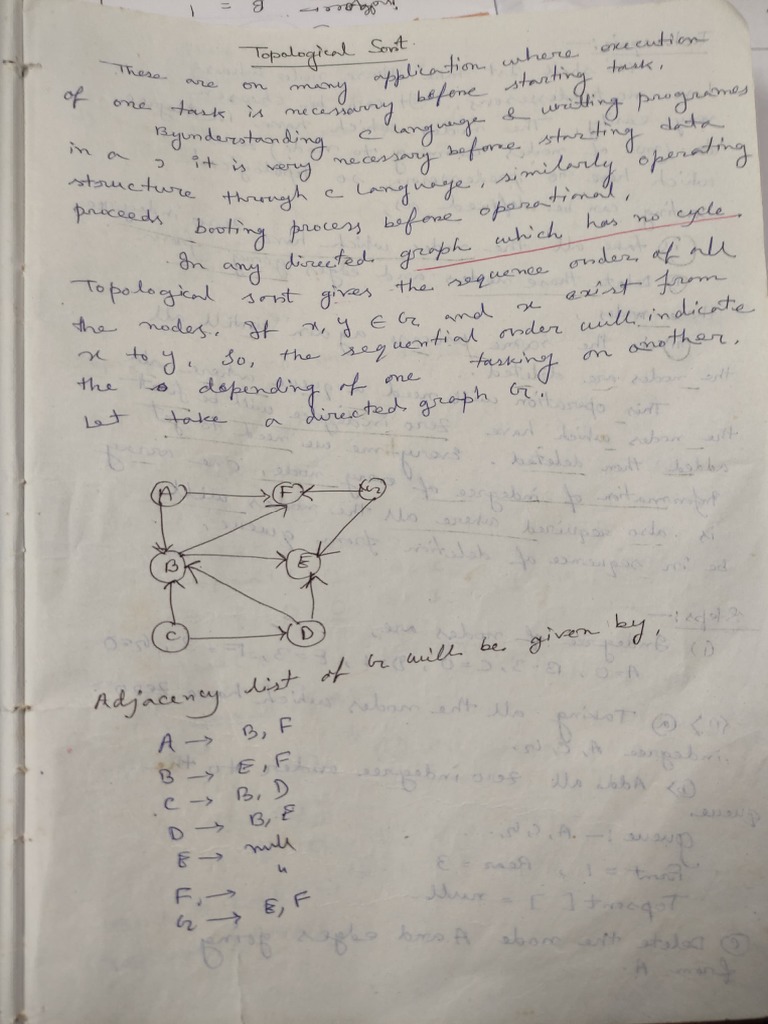 Topological Sort
These are on many application where execution
of one task is necessarry before starting task.
Byunderstanding C language & writting programes
in a , it is very necessary before starting data
structure through C language, similarly operating
proceeds booting process before operational,
In any directed graph which has no cycle.
Topological sort gives the sequence order of all
the nodes. If x, y ∈ G and x exist from
x to y, So, the sequential order will indicate
the depending of one tasking on another.
Let take a directed graph G.
A F G
B E
C D
Adjacency list of G will be given by,
A → B, F
B → E, F
C → B, D
D → B, E
E → null
F → "
G → E, F